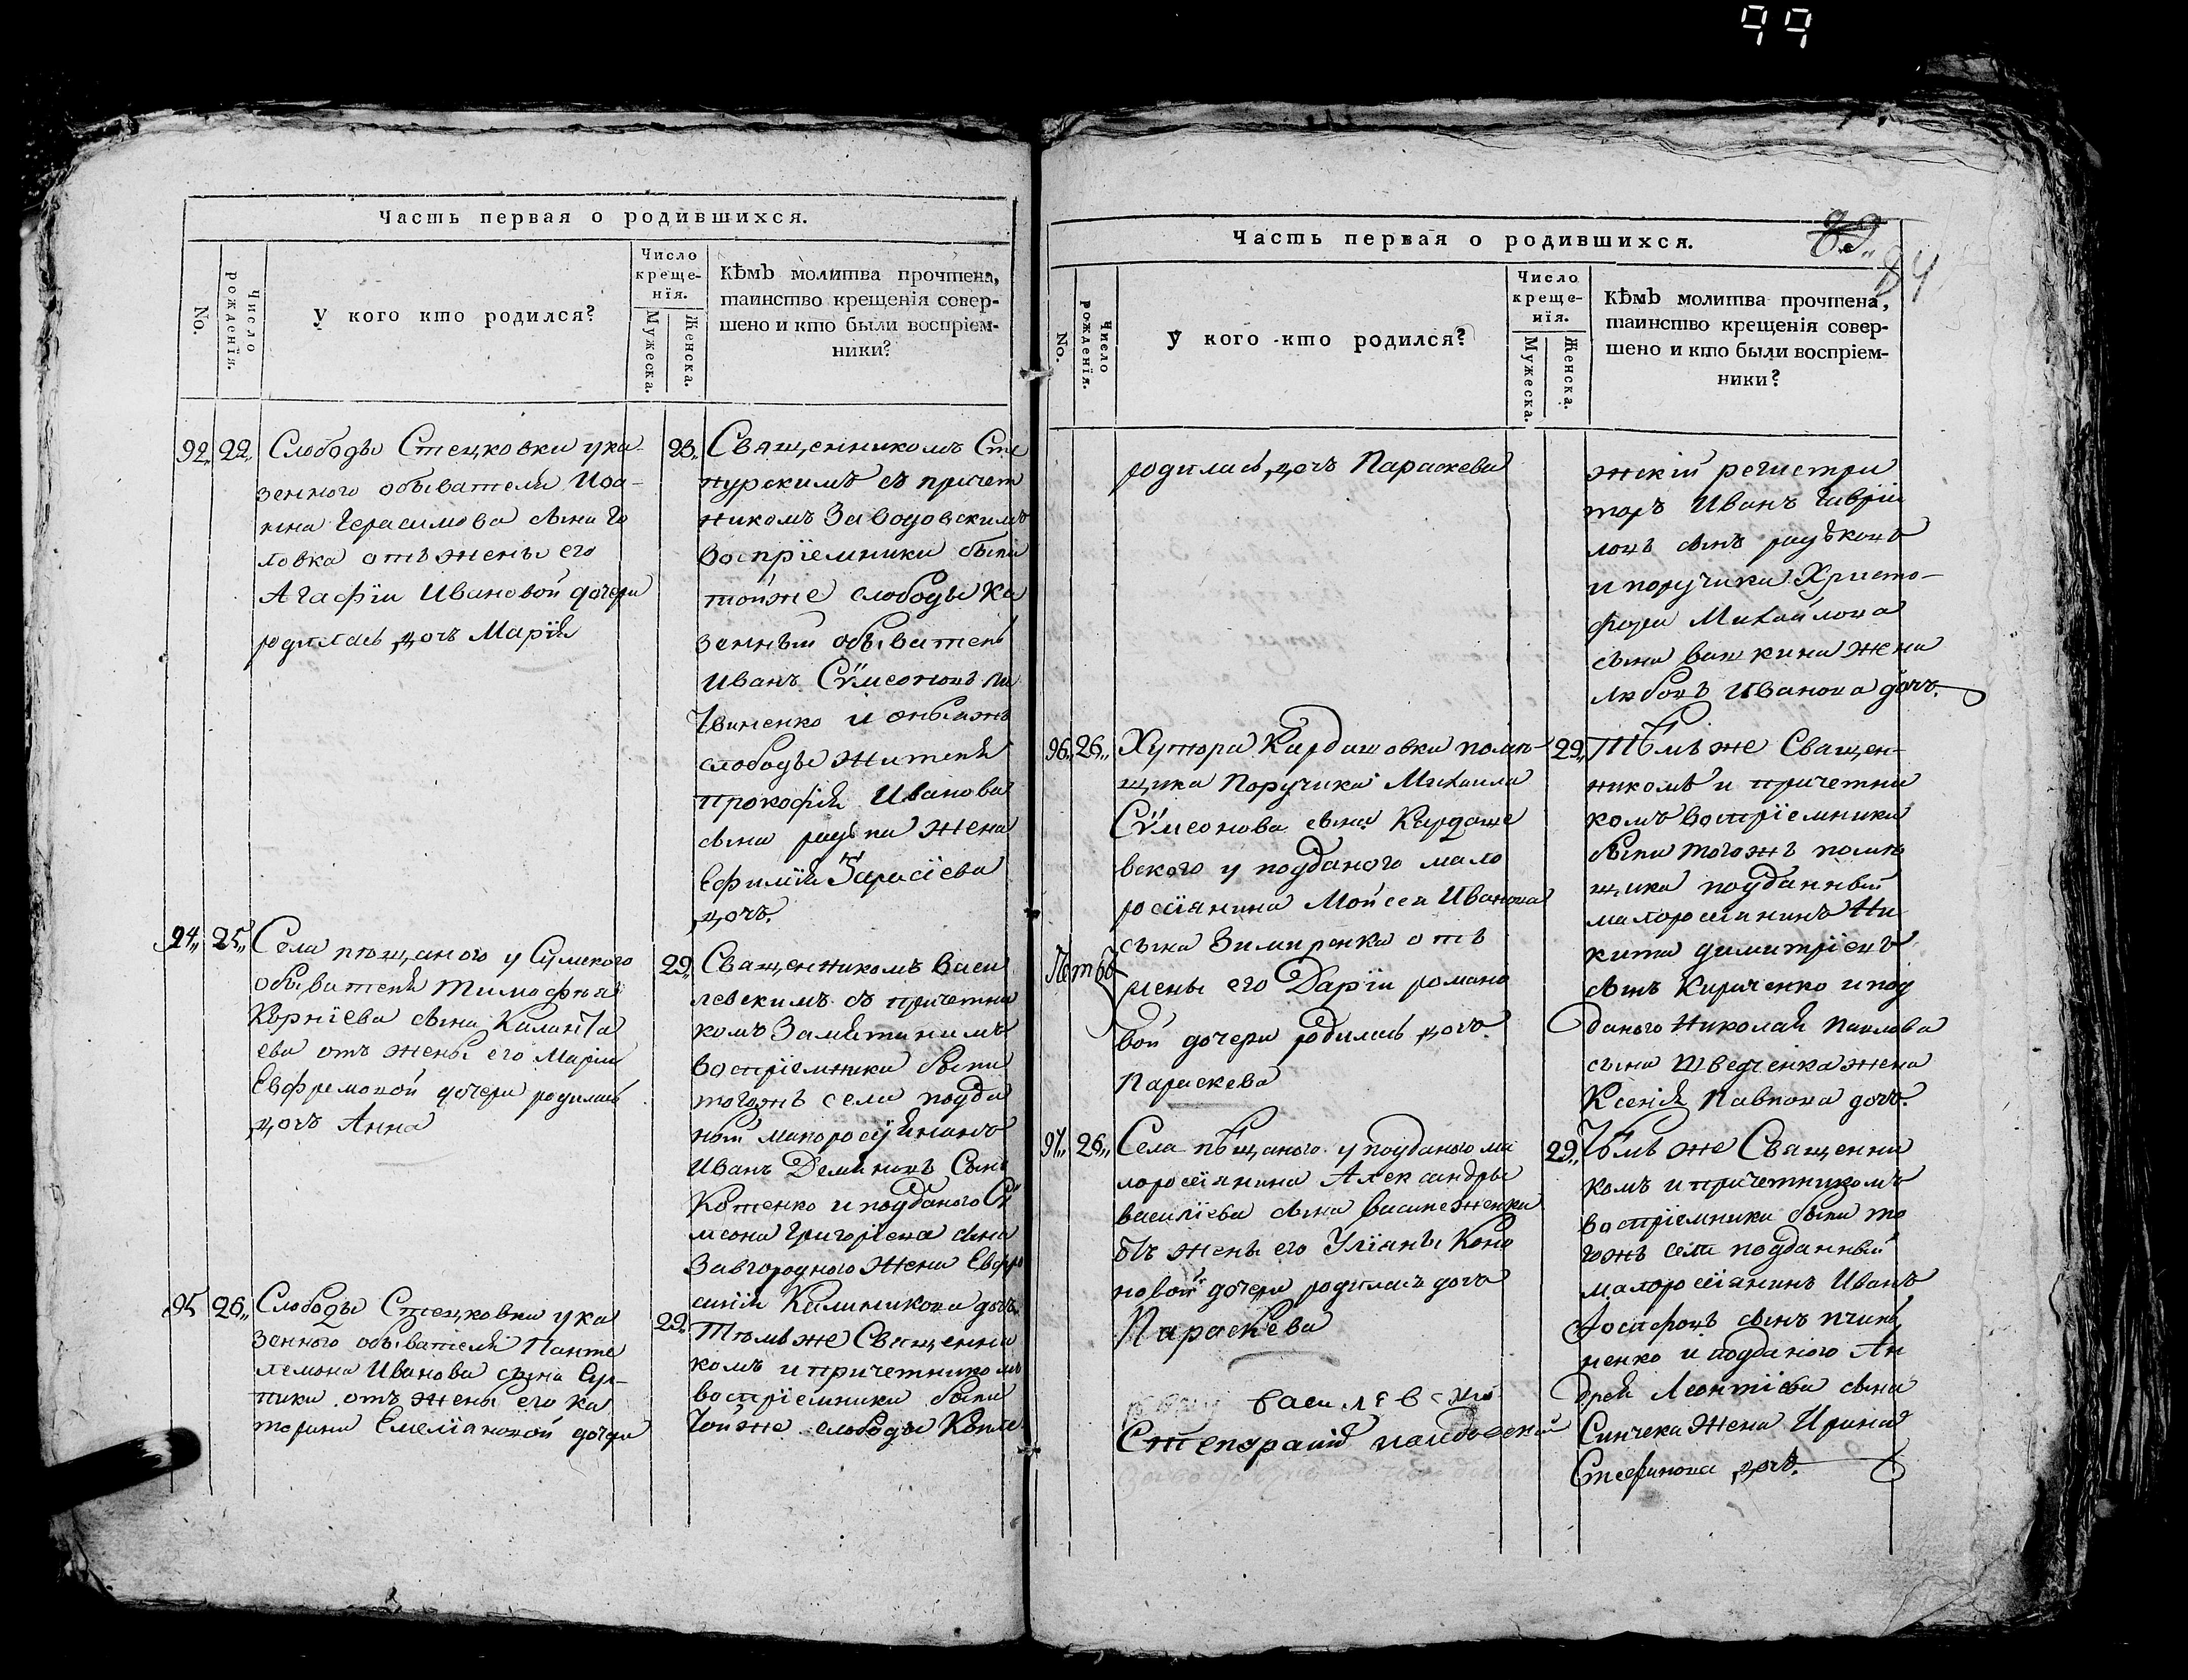 99
Часть первая о родившихся.
No.
Число рожденія.
У кого кто родился?
Число
креще-
нія.
Мужеска.
Женска.
Кѣмъ молитва прочтена,
таинство крещенія совер-
шено и кто были воспріем-
ники?
92,, 22,, Слободы Стецковки у ка-
зенного обывателя Иоа-
на Герасимова сына Го
ловка отъ жены его
Агафіи Ивановой дочери
родилась дочь Марія
23,, Священникомъ Сте
пурскимъ съ причет
никомъ Заводовскимъ
воспріемники были
тойже слободы ка
зенный обыватель
Иванъ Сѵмеоновъ
и оныяжъ
слободы жителя
Прокофія Иванова
сына жена
Ефимія Тарасіева
дочь.
94,, 25,, Села пѣщаного у Сумского
обывателя Тимофея
Корніева сына Каланта
ева отъ жены его Маріи
Евфремовой дочери родилась
дочь Анна
29,, Священникомъ Васи
левскимъ съ причетни
комъ
воспріемники были
тогожъ села подда
ной малоросіянинъ
Иванъ Деминовъ сынъ
Котенко и подданого Сѵ
меона Григоріева сына
Завгородного жена Евфро
синія Калиникова дочь
95 26,, Слободы Стецковки у ка
зенного обывателя Панте
лемона Иванова сына
отъ жены его Ка
терины Емеліяновой дочери
29,, Тѣмъ же Священни
комъ и причетникомъ
воспріемники были
тойже слободы
Часть первая о родившихся.
89,,
84
No.
Число рожденія.
У кого кто родился?
Число
креще-
нія.
Мужеска.
Женска.
Кѣмъ молитва прочтена,
таинство крещенія совер-
шено и кто были воспріем-
ники?
родилась дочь Параскева
жскій регистра
торъ Иванъ Гаврій
ловъ сынъ
и поручика Христо-
фора Михайлова
сына жена
Любовь Иванова дочь.
96,, 26,, Хутора Кардашовки помѣ-
щика Поручика Михаила
Сѵмеонова сына Кардаше
вского у подданого мало
росіянина Мойсея Иванова
сына отъ
жены его Даріи романо
вой дочери родилась дочь
Параскева
29,, Тѣмъ же Священ-
никомъ и причетни
комъ воспріемники
были тогожъ помѣ
щика подданный
малоросіянинъ Ни
кита димитріевъ
сынъ Кириченко и под
даного Николая Павлова
сына Шведченка жена
Ксенія Павлова дочь.
97,, 26,, Села пѣщаного у подданого ма
лоросіянина Александры
василіева сына
отъ жены его Уліяны Коно
новой дочери родилась дочь
Параскева
29,, Тѣмъ же Священни
комъ и причетникомъ
воспріемники были то
гожъ села подданный
малоросіянинъ Иванъ
Іосифовъ сынъ
ненко и подданого Ан
дрея Леонтіева сына
Синчека жена Ирина
Стефанова дочь.